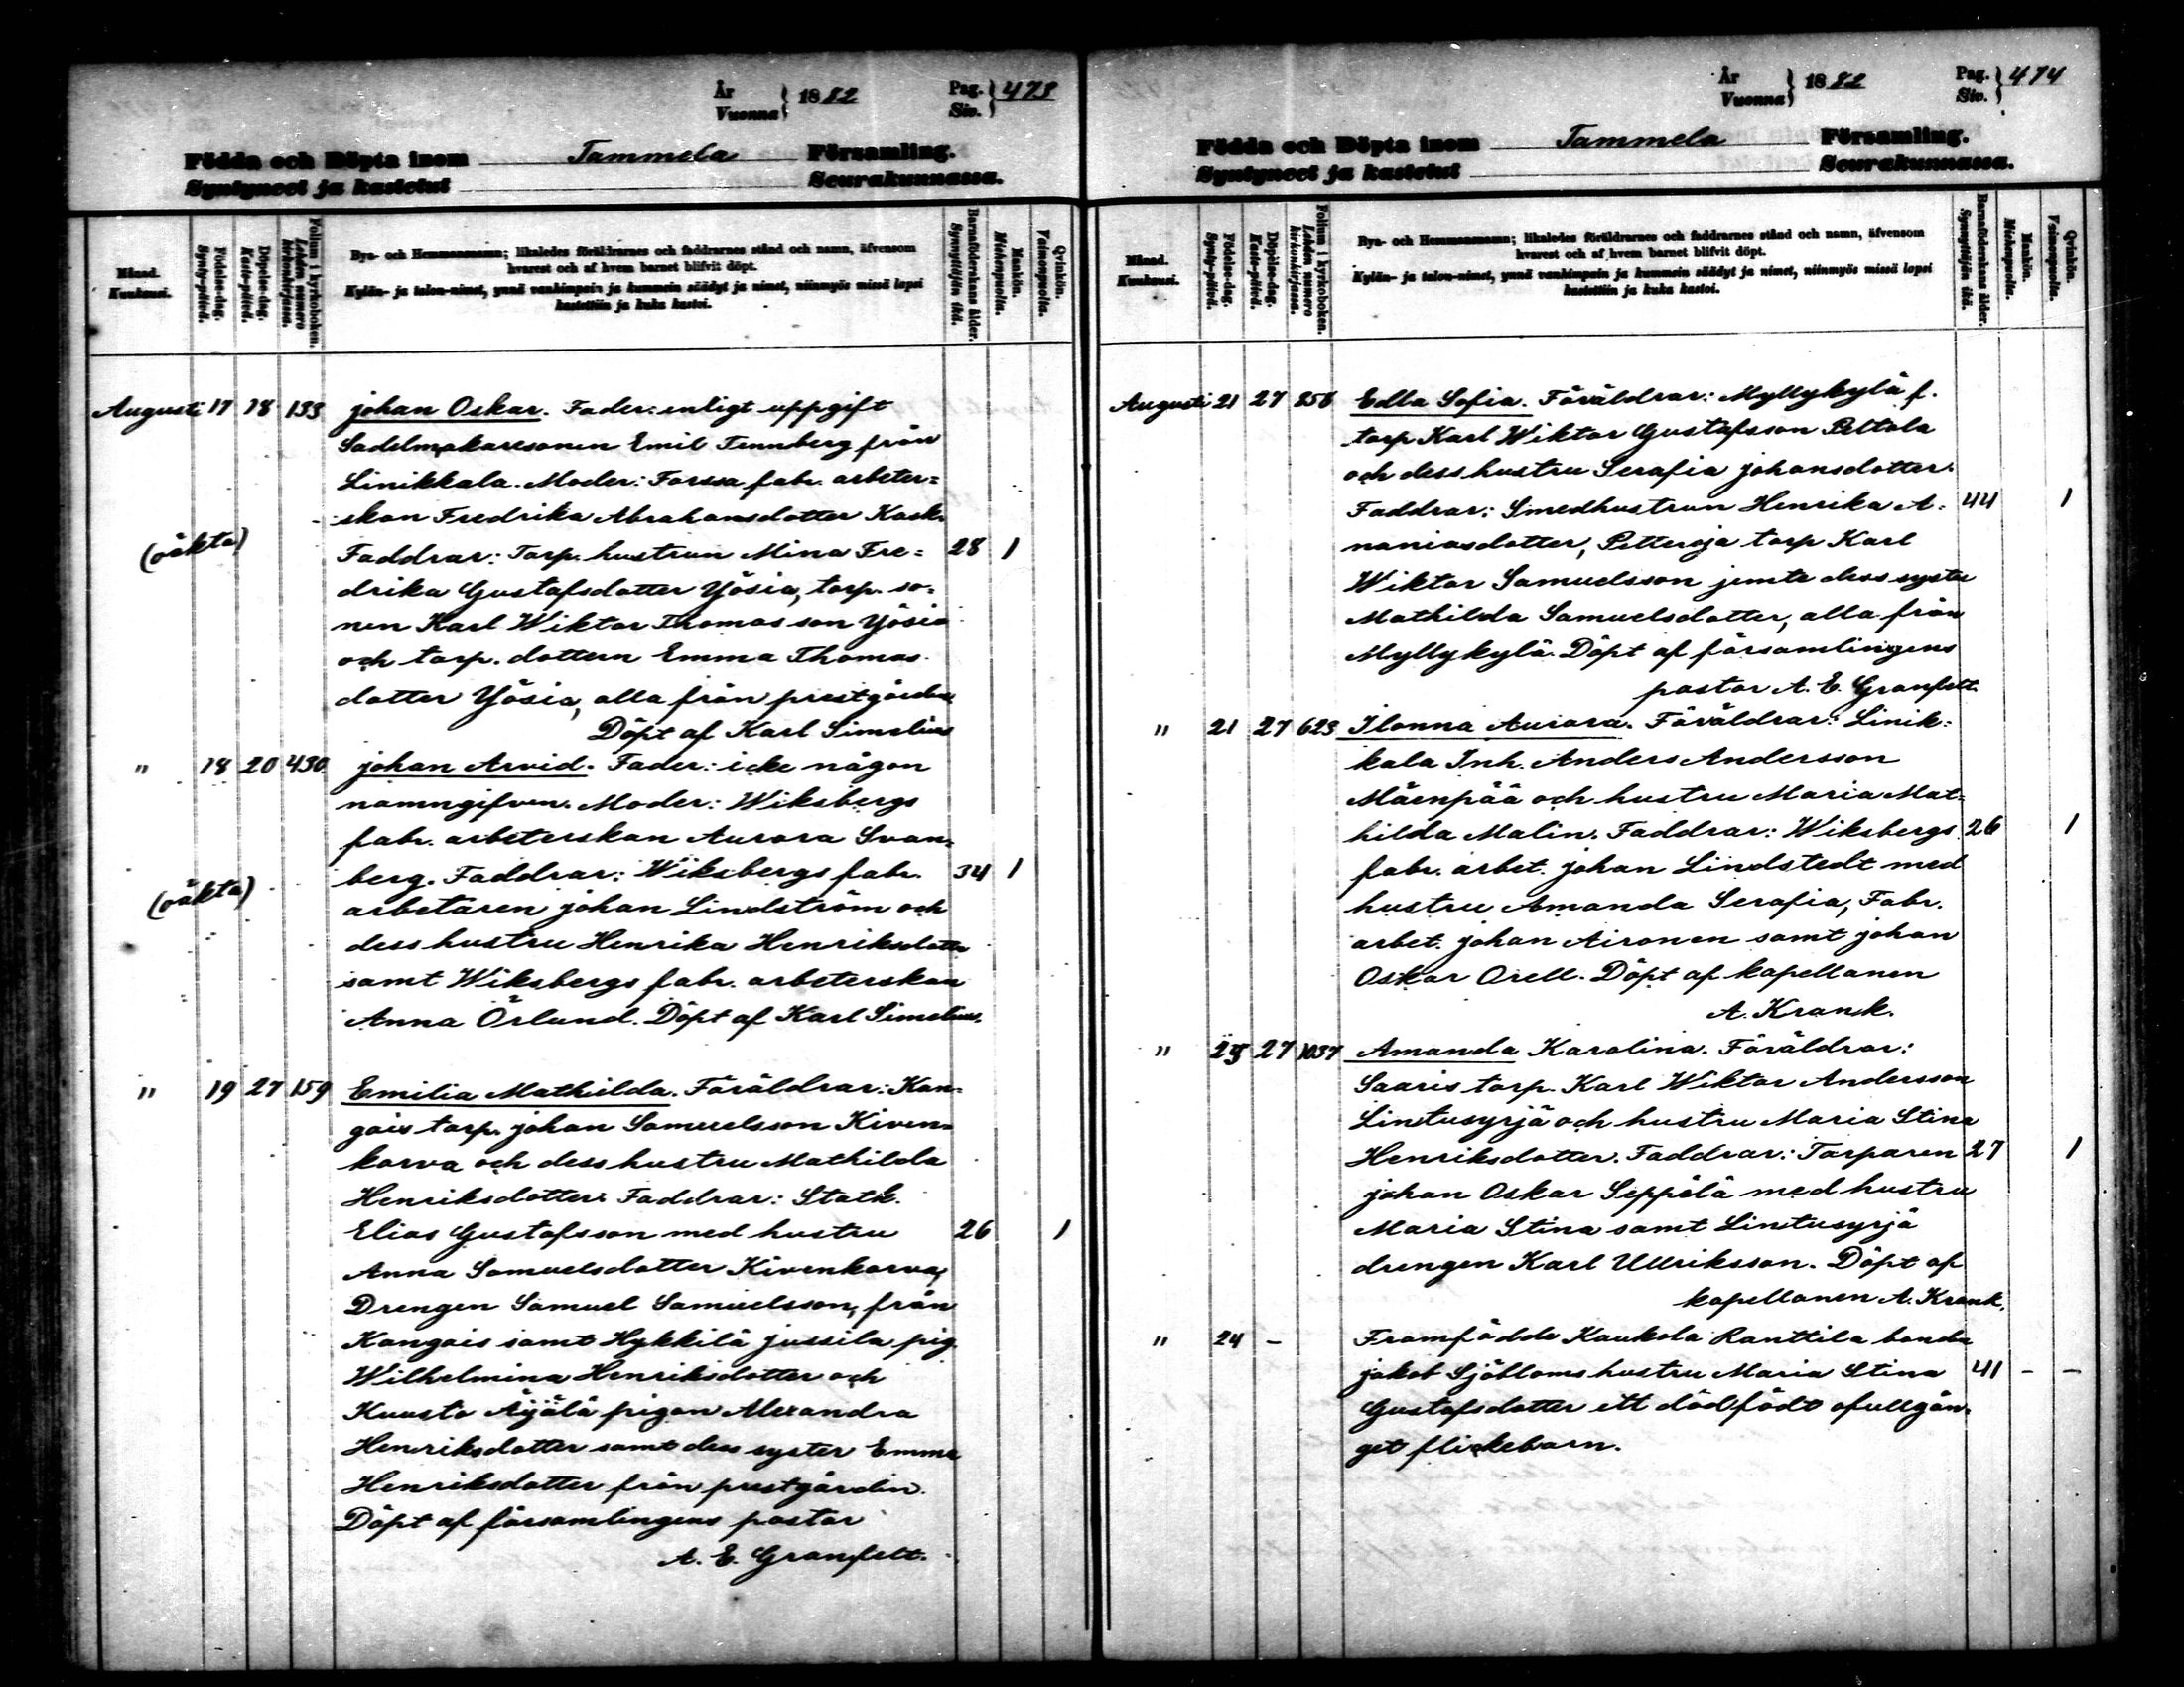 År
Vuonna } 1882
Pag.
Siv. } 473
Födda och Döpta inom Tammela Församling.
Syntyneet ja kastetut Seurakunnassa.
Månad.
Kuukausi.
Födelse-dag.
Synty-päivä.
Döpelse-dag.
Kaste-päivä.
Folium i kyrkoboken.
Lehden numero kirkonkirjassa.
Bya- och Hemmansnamn; likaledes föräldrarnes och faddrarnes stånd och namn, äfvensom
hvarest och af hvem barnet blifvit döpt.
Kylän- ja talon-nimet, ynnä vanhimpain ja kummein säädyt ja nimet, niinmyös missä lapsi
kastettiin ja kuka kastoi.
Barnaföderskans ålder.
Synnyttäjän ikä.
Mankön.
Miehenpuolta.
Qvinkön.
Vaimonpuolta.
Augusti 17 18 133 johan Oskar. Fader: enligt uppgift
Sadelmakaresonen Emil Tennberg från
Linikkala. Moder: Forssa fabr. arbeter=
skan Fredrika Abrahamsdotter Kask.
(oäkta) Faddrar: Torp. hustrun Mina Fre= 28 1
drika Gustafsdotter Yösia, torp. so=
nen Karl Wiktor Thomasson Yösia
och torp. dottern Emma Thomas
dotter Yösia, alla från prestgården
Döpt af Karl Simelius
" 18 20 430 johan Arvid. Fader: icke någon
namngifven. Moder: Wiksbergs
fabr. arbeterskan Aurora Svan=
berg. Faddrar: Wiksbergs fabr. 34 1
(oäkta) arbetaren johan Lindström och
dess hustru Henrika Henriksdotter
samt Wiksbergs fabr. arbeterskan
Anna Örlund. Döpt af Karl Simelius.
" 19 27 159 Emilia Mathilda. Föräldrar: Kan=
gais torp. johan Samuelsson Kiven=
korva och dess hustru Mathilda
Henriksdotter. Faddrar: Statk.
Elias Gustafsson med hustru 26 1
Anna Samuelsdotter Kivenkorva,
Drengen Samuel Samuelsson, från
Kangais samt Hykkilä jussila pig.
Wilhelmina Henriksdotter och
Kuusto Äijälä pigan Alexandra
Henriksdotter samt dess syster Emma
Henriksdotter från prestgården.
Döpt af församlingens pastor
A. E. Granfelt.
År
Vuonna } 1882
Pag.
Siv. } 474
Födda och Döpta inom Tammela Församling.
Syntyneet ja kastetut Seurakunnassa.
Månad.
Kuukausi.
Födelse-dag.
Synty-päivä.
Döpelse-dag.
Kaste-päivä.
Folium i kyrkoboken.
Lehden numero kirkonkirjassa.
Bya- och Hemmansnamn; likaledes föräldrarnes och faddrarnes stånd och namn, äfvensom
hvarest och af hvem barnet blifvit döpt.
Kylän- ja talon-nimet, ynnä vanhimpain ja kummein säädyt ja nimet, niinmyös missä lapsi
kastettiin ja kuka kastoi.
Barnaföderskans ålder.
Synnyttäjän ikä.
Mankön.
Miehenpuolta.
Qvinkön.
Vaimonpuolta.
Augusti 21 27 256 Edla Sofia. Föräldrar: Myllykylä f.
torp Karl Wiktor Gustafsson Peltola
och dess hustru Serafia johansdotter.
Faddrar: Smedhustrun Henrika A= 44 1
naniasdotter, Petteroja torp Karl
Wiktor Samuelsson jemte dess syster
Mathilda Samuelsdotter, alla från
Myllykylä. Döpt af församlingens
pastor A. E. Granfelt.
" 21 27 623 Ilonna Aurora. Föräldrar: Linik=
kala Inh. Anders Andersson
Mäenpää och hustru Maria Mat=
hilda Malin. Faddrar: Wiksbergs 26 1
fabr. arbet. johan Lindstedt med
hustru Amanda Serafia, Fabr.
arbet. johan Aironen samt johan
Oskar Orell. Döpt af kapellanen
A. Krank.
" 23 27 1037 Amanda Karolina. Föräldrar:
Saaris torp. Karl Wiktor Andersson
Lintusyrjä och hustru Maria Stina
Henriksdotter. Faddrar: Torparen 27 1
johan Oskar Seppälä med hustru
Maria Stina samt Lintusyrjä
drengen Karl Ullriksson. Döpt af
kapellanen A. Krank.
" 24 – Framfödde Kaukola Ranttila bonda
jakob Sjöbloms hustru Maria Stina 41 – –
Gustafsdotter ett dödfödt ofullgån=
get flickebarn.